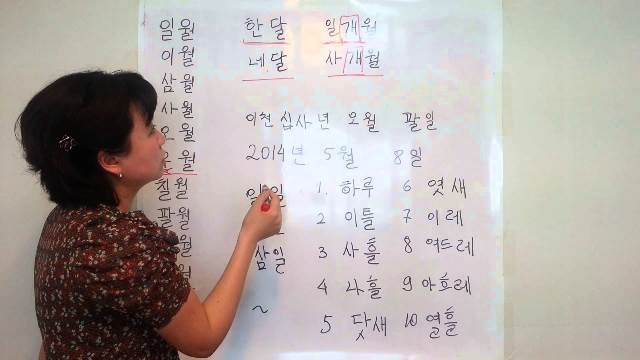 일월
이월
삼월
사월
오월
월
칠월
팔월
월
한달 일개월
네달 사개월
이천 십사 년 오월 팔일
2014년 5월 8일
일일
삼일
~
1. 하루
2 이틀
3 사흘
4 나흘
5 닷새
6 엿새
7 이레
8 여드레
9 아흐레
10 열흘